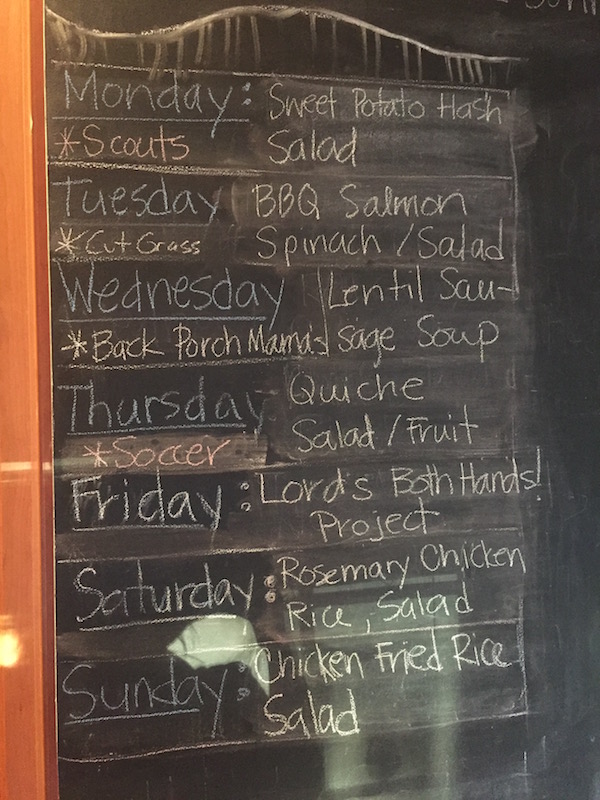 Monday: Sweet Potato Hash
*Scouts Salad
Tuesday BBQ Salmon
*Cut Grass Spinach / Salad
Wednesday Lentil Sau-
*Back Porch Mama's sage Soup
Thursday Quiche
Salad / Fruit
*Soccer
Friday: Lord's Both Hands!
Project
Saturday: Rosemary Chicken
Rice, Salad
Sunday: Chicken Fried Rice
Salad